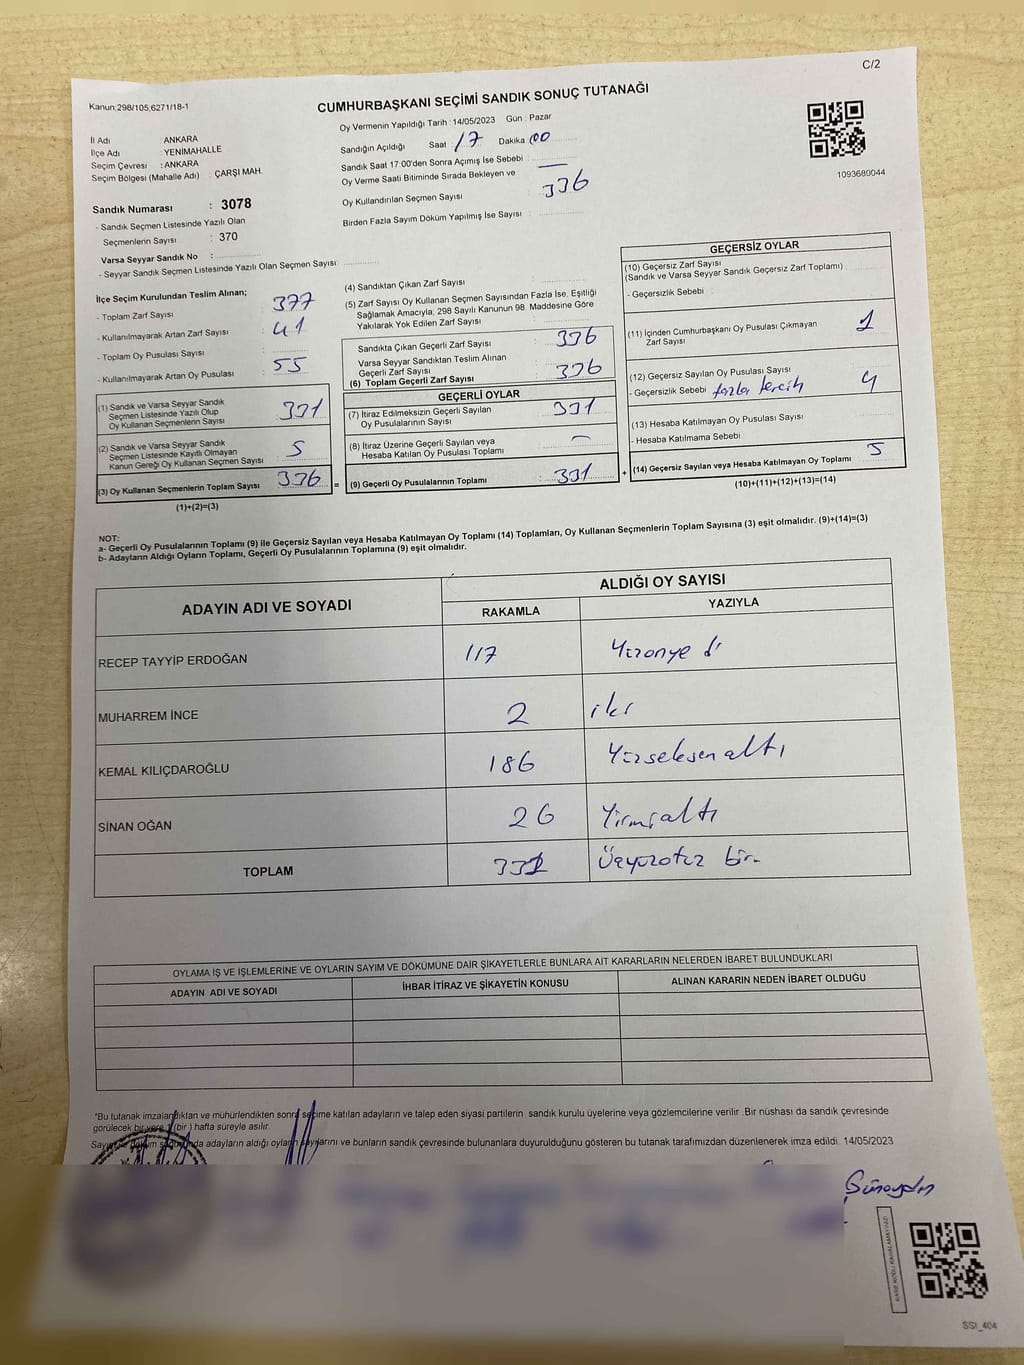 C/2
Kanun:298/105,6271/18-1
CUMHURBAŞKANI SEÇİMİ SANDIK SONUÇ TUTANAĞI
İl Adı : ANKARA
İlçe Adı : YENİMAHALLE
Seçim Çevresi : ANKARA
Seçim Bölgesi (Mahalle Adı) : ÇARŞI MAH.
Sandık Numarası : 3078
- Sandık Seçmen Listesinde Yazılı Olan
Seçmenlerin Sayısı : 370
Varsa Seyyar Sandık No :
- Seyyar Sandık Seçmen Listesinde Yazılı Olan Seçmen Sayısı :
Oy Vermenin Yapıldığı Tarih : 14/05/2023 Gün : Pazar
Sandığın Açıldığı Saat 17 Dakika 00
Sandık Saat 17:00'den Sonra Açımış İse Sebebi : —
Oy Verme Saati Bitiminde Sırada Bekleyen ve
Oy Kullandırılan Seçmen Sayısı : 336
Birden Fazla Sayım Döküm Yapılmış İse Sayısı :
1093680044
İlçe Seçim Kurulundan Teslim Alınan;
- Toplam Zarf Sayısı : 377
- Kullanılmayarak Artan Zarf Sayısı : 41
- Toplam Oy Pusulası Sayısı :
- Kullanılmayarak Artan Oy Pusulası : 55
(1) Sandık ve Varsa Seyyar Sandık
Seçmen Listesinde Yazılı Olup
Oy Kullanan Seçmenlerin Sayısı : 331
(2) Sandık ve Varsa Seyyar Sandık
Seçmen Listesinde Kayıtlı Olmayan
Kanun Gereği Oy Kullanan Seçmen Sayısı : 5
(3) Oy Kullanan Seçmenlerin Toplam Sayısı : 336
(1)+(2)=(3)
(4) Sandıktan Çıkan Zarf Sayısı :
(5) Zarf Sayısı Oy Kullanan Seçmen Sayısından Fazla İse, Eşitliği
Sağlamak Amacıyla; 298 Sayılı Kanunun 98. Maddesine Göre
Yakılarak Yok Edilen Zarf Sayısı :
Sandıkta Çıkan Geçerli Zarf Sayısı : 336
Varsa Seyyar Sandıktan Teslim Alınan
Geçerli Zarf Sayısı :
(6) Toplam Geçerli Zarf Sayısı : 336
GEÇERLİ OYLAR
(7) İtiraz Edilmeksizin Geçerli Sayılan
Oy Pusulalarının Sayısı : 331
(8) İtiraz Üzerine Geçerli Sayılan veya
Hesaba Katılan Oy Pusulası Toplamı : —
= (9) Geçerli Oy Pusulalarının Toplamı : 331
GEÇERSİZ OYLAR
(10) Geçersiz Zarf Sayısı
(Sandık ve Varsa Seyyar Sandık Geçersiz Zarf Toplamı) :
- Geçersizlik Sebebi :
(11) İçinden Cumhurbaşkanı Oy Pusulası Çıkmayan
Zarf Sayısı : 1
(12) Geçersiz Sayılan Oy Pusulası Sayısı : 4
- Geçersizlik Sebebi : fazla tercih
(13) Hesaba Katılmayan Oy Pusulası Sayısı :
- Hesaba Katılmama Sebebi :
+ (14) Geçersiz Sayılan veya Hesaba Katılmayan Oy Toplamı : 5
(10)+(11)+(12)+(13)=(14)
NOT:
a- Geçerli Oy Pusulalarının Toplamı (9) ile Geçersiz Sayılan veya Hesaba Katılmayan Oy Toplamı (14) Toplamları, Oy Kullanan Seçmenlerin Toplam Sayısına (3) eşit olmalıdır. (9)+(14)=(3)
b- Adayların Aldığı Oyların Toplamı, Geçerli Oy Pusulalarının Toplamına (9) eşit olmalıdır.
ADAYIN ADI VE SOYADI
ALDIĞI OY SAYISI
RAKAMLA YAZIYLA
RECEP TAYYİP ERDOĞAN 117 Yüzonyedi
MUHARREM İNCE 2 iki
KEMAL KILIÇDAROĞLU 186 Yüzseksenaltı
SİNAN OĞAN 26 Yirmialtı
TOPLAM 331 Üçyüzotuz bir
OYLAMA İŞ VE İŞLEMLERİNE VE OYLARIN SAYIM VE DÖKÜMÜNE DAİR ŞİKAYETLERLE BUNLARA AİT KARARLARIN NELERDEN İBARET BULUNDUKLARI
ADAYIN ADI VE SOYADI İHBAR İTİRAZ VE ŞİKAYETİN KONUSU ALINAN KARARIN NEDEN İBARET OLDUĞU
*Bu tutanak imzalandıktan ve mühürlendikten sonra seçime katılan adayların ve talep eden siyasi partilerin sandık kurulu üyelerine veya gözlemcilerine verilir. Bir nüshası da sandık çevresinde
görülecek bir yere 1 (bir) hafta süreyle asılır.
adayların aldığı oyların sayılarını ve bunların sandık çevresinde bulunanlara duyurulduğunu gösteren bu tutanak tarafımızdan düzenlenerek imza edildi. 14/05/2023
Günaydın
SSI_404